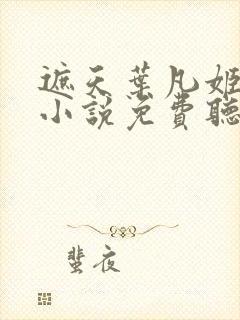 遮天葉凡姬
小說免費聽
蜚夜